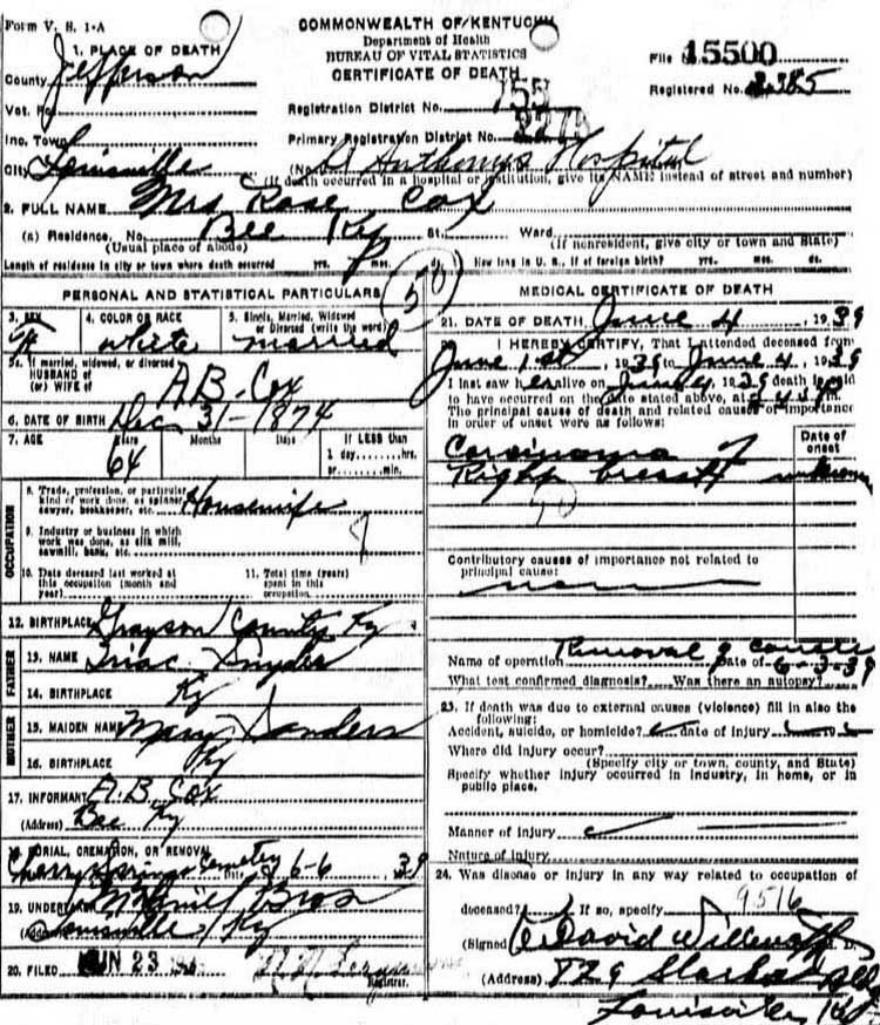 Form V. S. 1-A
COMMONWEALTH OF KENTUCKY
Department of Health
BUREAU OF VITAL STATISTICS
CERTIFICATE OF DEATH
File 15500
Registered No. 2385
1. PLACE OF DEATH
County Jefferson
Vot. Pct.
Inc. Town
City Louisville
Registration District No. 755
Primary Registration District No.
(No. St Anthonys Hospital
(If death occurred in a hospital or institution, give its NAME instead of street and number)
2. FULL NAME Mrs Rose Cox
(a) Residence, No. Bee Ky St., Ward
(Usual place of abode)
(If nonresident, give city or town and State)
Length of residence in city or town where death occurred yrs. mos. ds. How long in U. S., if of foreign birth? yrs. mos. ds.
50
PERSONAL AND STATISTICAL PARTICULARS
3. SEX
4. COLOR OR RACE
white
5. Single, Married, Widowed or Divorced (write the word)
married
5a. If married, widowed, or divorced
HUSBAND of
(or) WIFE of
A B. Cox
6. DATE OF BIRTH Dec 31-1874
7. AGE
Years
64
Months
Days
If LESS than
1 day, hrs.
or min.
OCCUPATION
8. Trade, profession, or particular
kind of work done, as spinner,
sawyer, bookkeeper, etc. Housewife
9. Industry or business in which
work was done, as silk mill,
sawmill, bank, etc.
10. Date deceased last worked at
this occupation (month and
year)
11. Total time (years)
spent in this
occupation
12. BIRTHPLACE Grayson County Ky
FATHER
13. NAME Snyder
14. BIRTHPLACE Ky
MOTHER
15. MAIDEN NAME Mary Sanders
16. BIRTHPLACE Ky
17. INFORMANT A.B. Cox
(Address) Bee Ky
18. BURIAL, CREMATION, OR REMOVAL
Cherry Springs Cemetery 6-6, 39
19. UNDERTAKER Bros
(Address) Louisville Ky
20. FILED JUN 23
Registrar.
MEDICAL CERTIFICATE OF DEATH
21. DATE OF DEATH June 4, 1939
22. I HEREBY CERTIFY, That I attended deceased from
June 1st, 1939 to June 4, 1939
I last saw her alive on June 4, 1939 death is said
to have occurred on the date stated above, at m.
The principal cause of death and related causes of importance
in order of onset were as follows:
Date of
onset
Carcinoma of
Right breast unknown
Contributory causes of importance not related to
principal cause:
Name of operation Removal of Date of 6-3-39
What test confirmed diagnosis? Was there an autopsy?
23. If death was due to external causes (violence) fill in also the
following:
Accident, suicide, or homicide? date of injury
Where did injury occur?
(Specify city or town, county, and State)
Specify whether injury occurred in industry, in home, or in
public place.
Manner of injury
Nature of injury
24. Was disease or injury in any way related to occupation of
deceased? If so, specify 9516
(Signed) David M. D.
(Address) 729
Louisville Ky